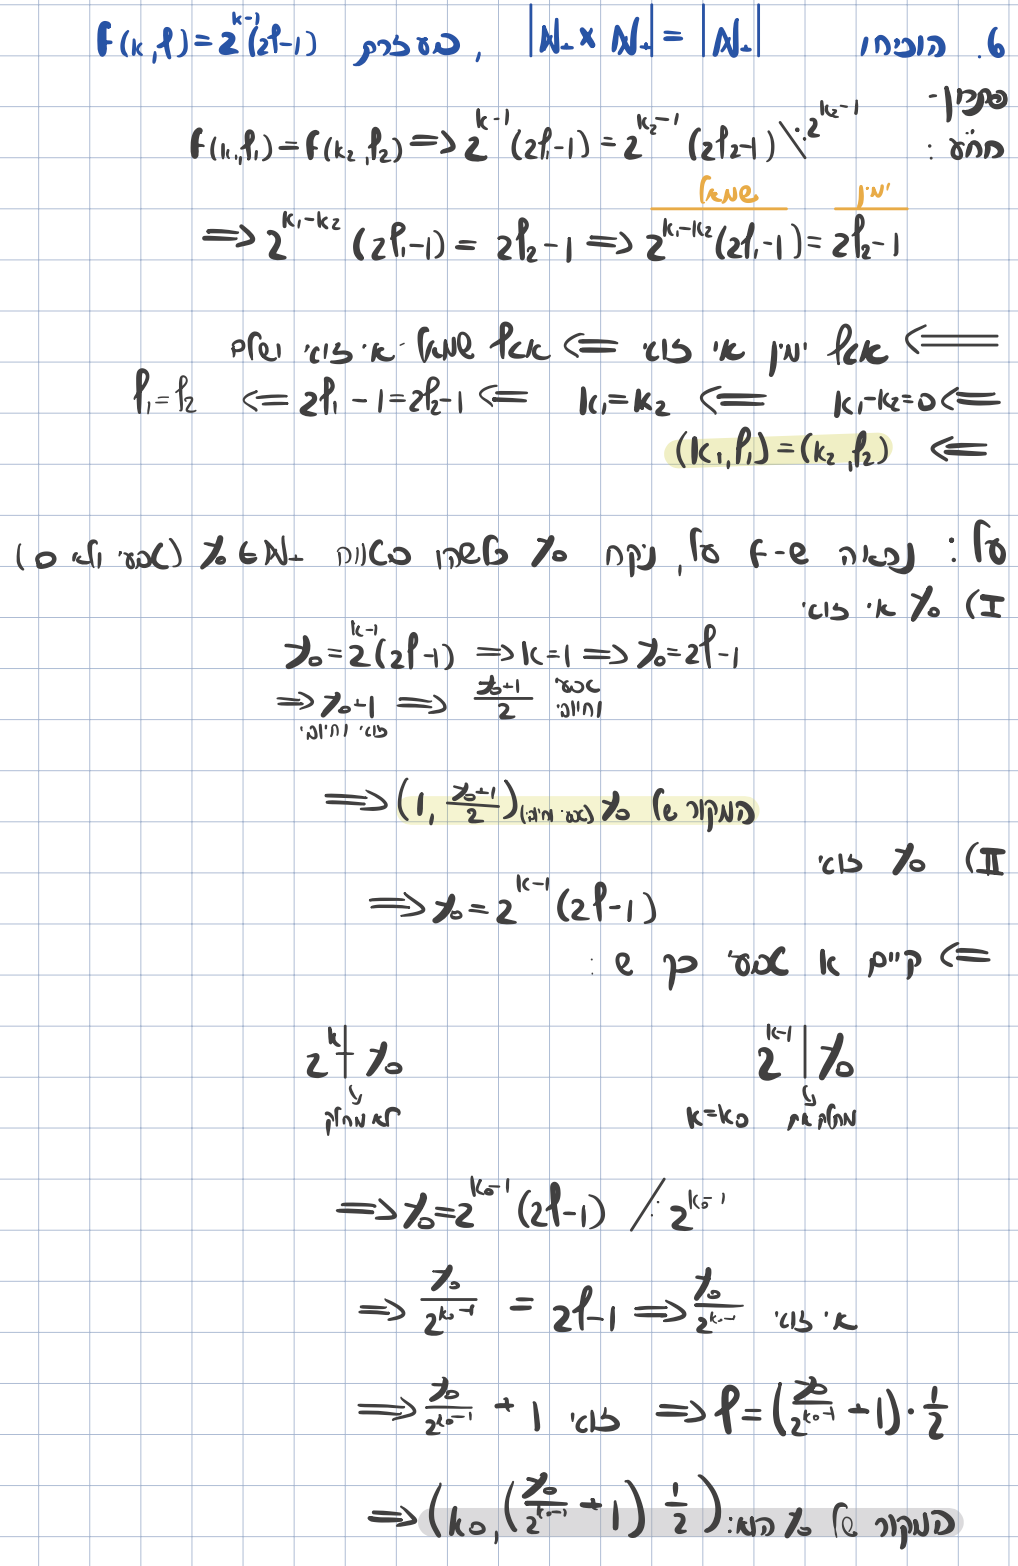 6. הוכיחו |ℕ₊ × ℕ₊| = |ℕ₊| , בעזרת f(k,l) = 2^{k-1}(2l-1)
פתרון-
חח"ע: f(k₁,l₁) = f(k₂,l₂) ⟹ 2^{k-1}(2l₁-1) = 2^{k₂-1}(2l₂-1) \ :2^{k₂-1}
שמאל ימין
⟹ 2^{k₁-k₂}(2l₁-1) = 2l₂-1 ⟹ 2^{k₁-k₂}(2l₁-1) = 2l₂-1
⟸ אגף ימין אי זוגי ⟸ אגף שמאל אי זוגי ושלם
⟸ k₁-k₂=0 ⟸ k₁=k₂ ⟸ 2l₁-1=2l₂-1 ⟸ l₁=l₂
⟸ (k₁,l₁)=(k₂,l₂)
על: נראה ש-f על, ניקח y₀ כלשהו בטווח y₀∈ℕ₊ (טבעי ולא 0)
I) y₀ אי זוגי
y₀=2^{k-1}(2l-1) ⟹ k=1 ⟹ y₀=2l-1
⟹ y₀+1 ⟹ \frac{y₀+1}{2} טבעי וחיובי
זוגי וחיובי
⟹ (1, \frac{y₀+1}{2}) (טבעי וחיובי) המקור של y₀
II) y₀ זוגי
⟹ y₀=2^{k-1}(2l-1)
⟸ קיים k טבעי כך ש:
2^{k-1} | y₀ 2^k ∤ y₀
מחלק את k=k₀ לא מחלק
⟹ y₀=2^{k₀-1}(2l-1) /:2^{k₀-1}
⟹ \frac{y₀}{2^{k₀-1}} = 2l-1 ⟹ \frac{y₀}{2^{k₀-1}} אי זוגי
⟹ \frac{y₀}{2^{k₀-1}} + 1 זוגי ⟹ l=(\frac{y₀}{2^{k₀-1}}+1)·\frac{1}{2}
⟹ (k₀,(\frac{y₀}{2^{k₀-1}}+1)\frac{1}{2}) המקור של y₀ הוא: